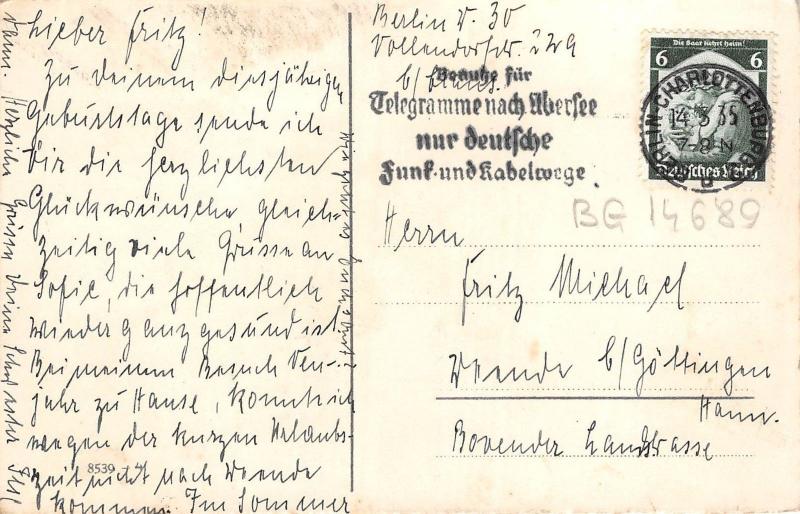 Lieber Fritz!
Zu Deinem diesjährigen
Geburtstage sende ich
Dir die herzlichsten
Glückwünsche, gleich=
zeitig viele Grüsse an
Sofie, die hoffentlich
wieder ganz gesund ist.
Bei meinem Besuch Neu-
jahr zu Hause, konnte ich
wegen der kurzen Urlaubs-
zeit nicht nach Weende
kommen. Im Sommer
dann. Herzliche Grüsse Deine Schwester Else
8539
Berlin W. 30
b/
Benutze für
Telegramme nach Übersee
nur deutsche
Funk- und Kabelwege
6 Die Saar kehrt heim! 6
Deutsches Reich
BERLIN-CHARLOTTENBURG
14.3.35
7-8 N
BG 14689
Herrn
Fritz Michael
Weende b/Göttingen
Hann.
Bovender Landstrasse